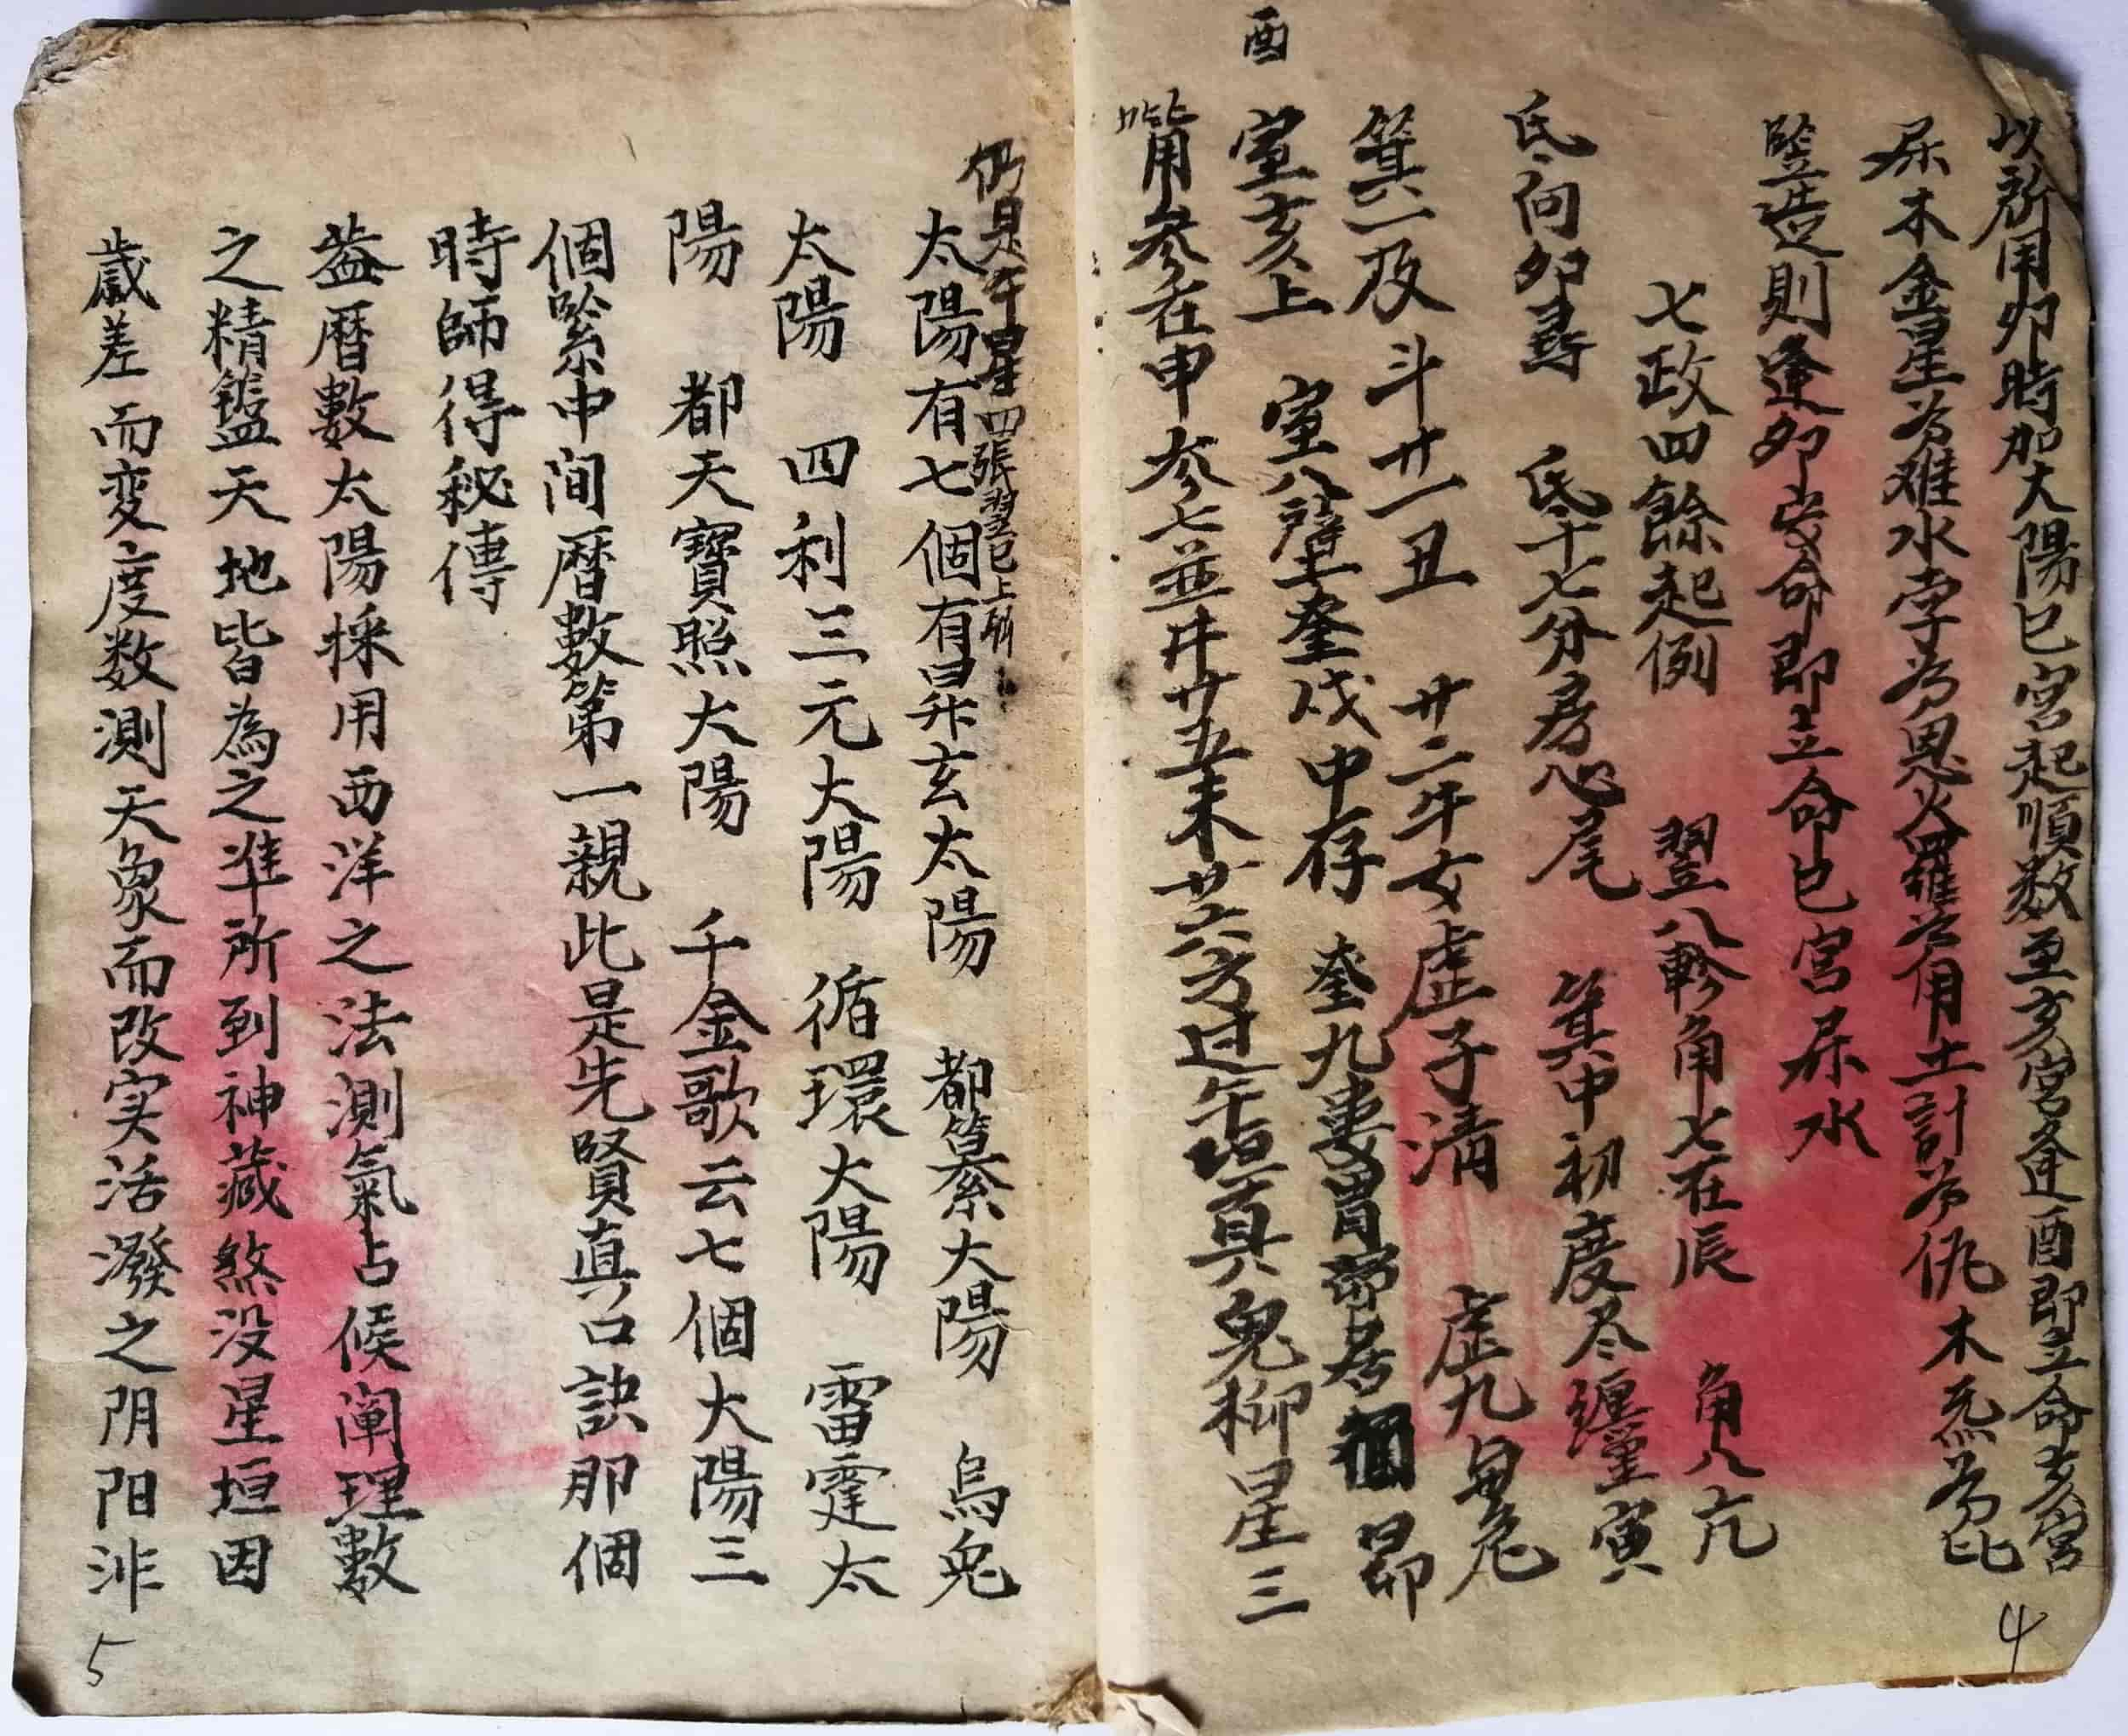 以所用卯時加太陽巳宮起順数至亥宮逢酉即立命亥宮
屎木金星为难水孛为恩火羅为用土計为仇木炁为比
竪造則逢卯安命即立命巳宮屎水
七政四餘起例 翌八軫角七在辰 角八亢
氐向夘尋 氐十七分房心尾 箕中初度尽纏寅
箕二及斗廿一丑 廿二牛女虛子清 虛九里危
酉
室亥上 室八壁奎戌中存 奎九婁胃 昴
觜用参在申 参七並井廿五未 廿六方过午垣真 鬼柳星三
仍是午 星四張翌巳上斩
太陽有七個有昇玄太陽 都篡大陽 烏兔
太陽 四利三元大陽 循環大陽 雷霆太
陽 都天寶照大陽 千金歌云七個大陽三
個緊中间曆數第一親此是先賢真口訣那個
時師得秘傳
葢曆數太陽採用西洋之法測氣占候闡理數
之精盤天地皆為之準所到神藏煞没星垣因
歳差而变度数測天象而改实活潑之阴阳非
5
4